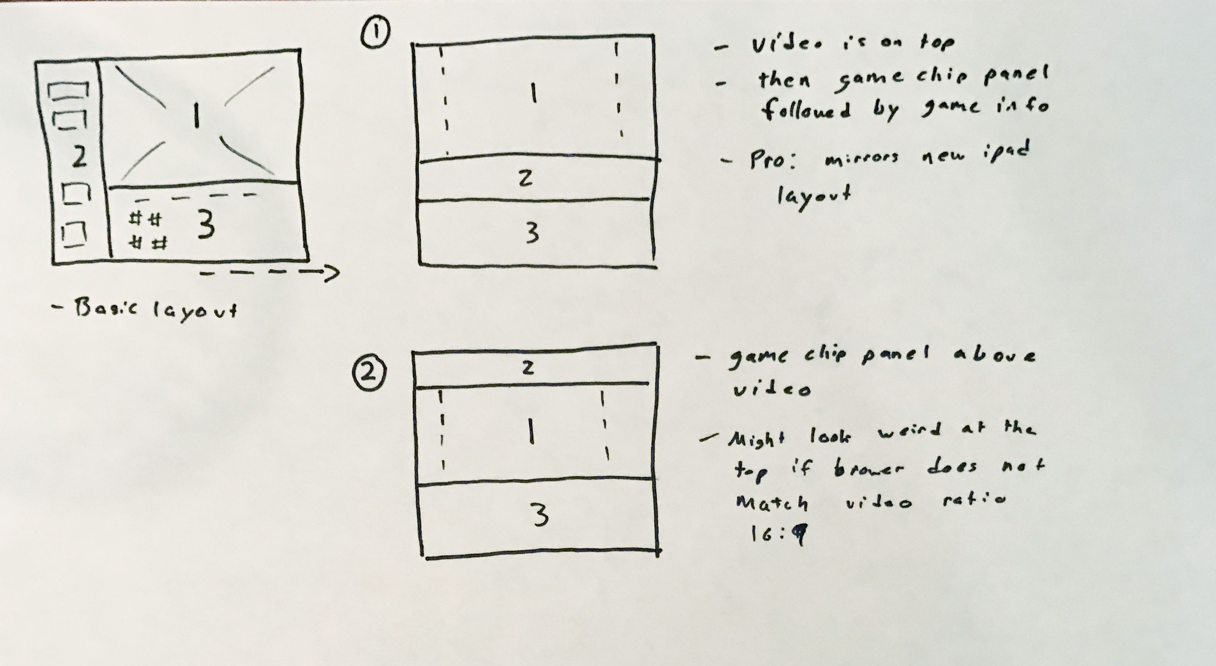 1
2
3
# #
# #
- Basic layout
①
1
2
3
- video is on top
- then game chip panel
followed by game info
- Pro: mirrors new ipad
layout
②
2
1
3
- game chip panel above
video
- Might look weird at the
top if brower does not
Match video ratio
16:9